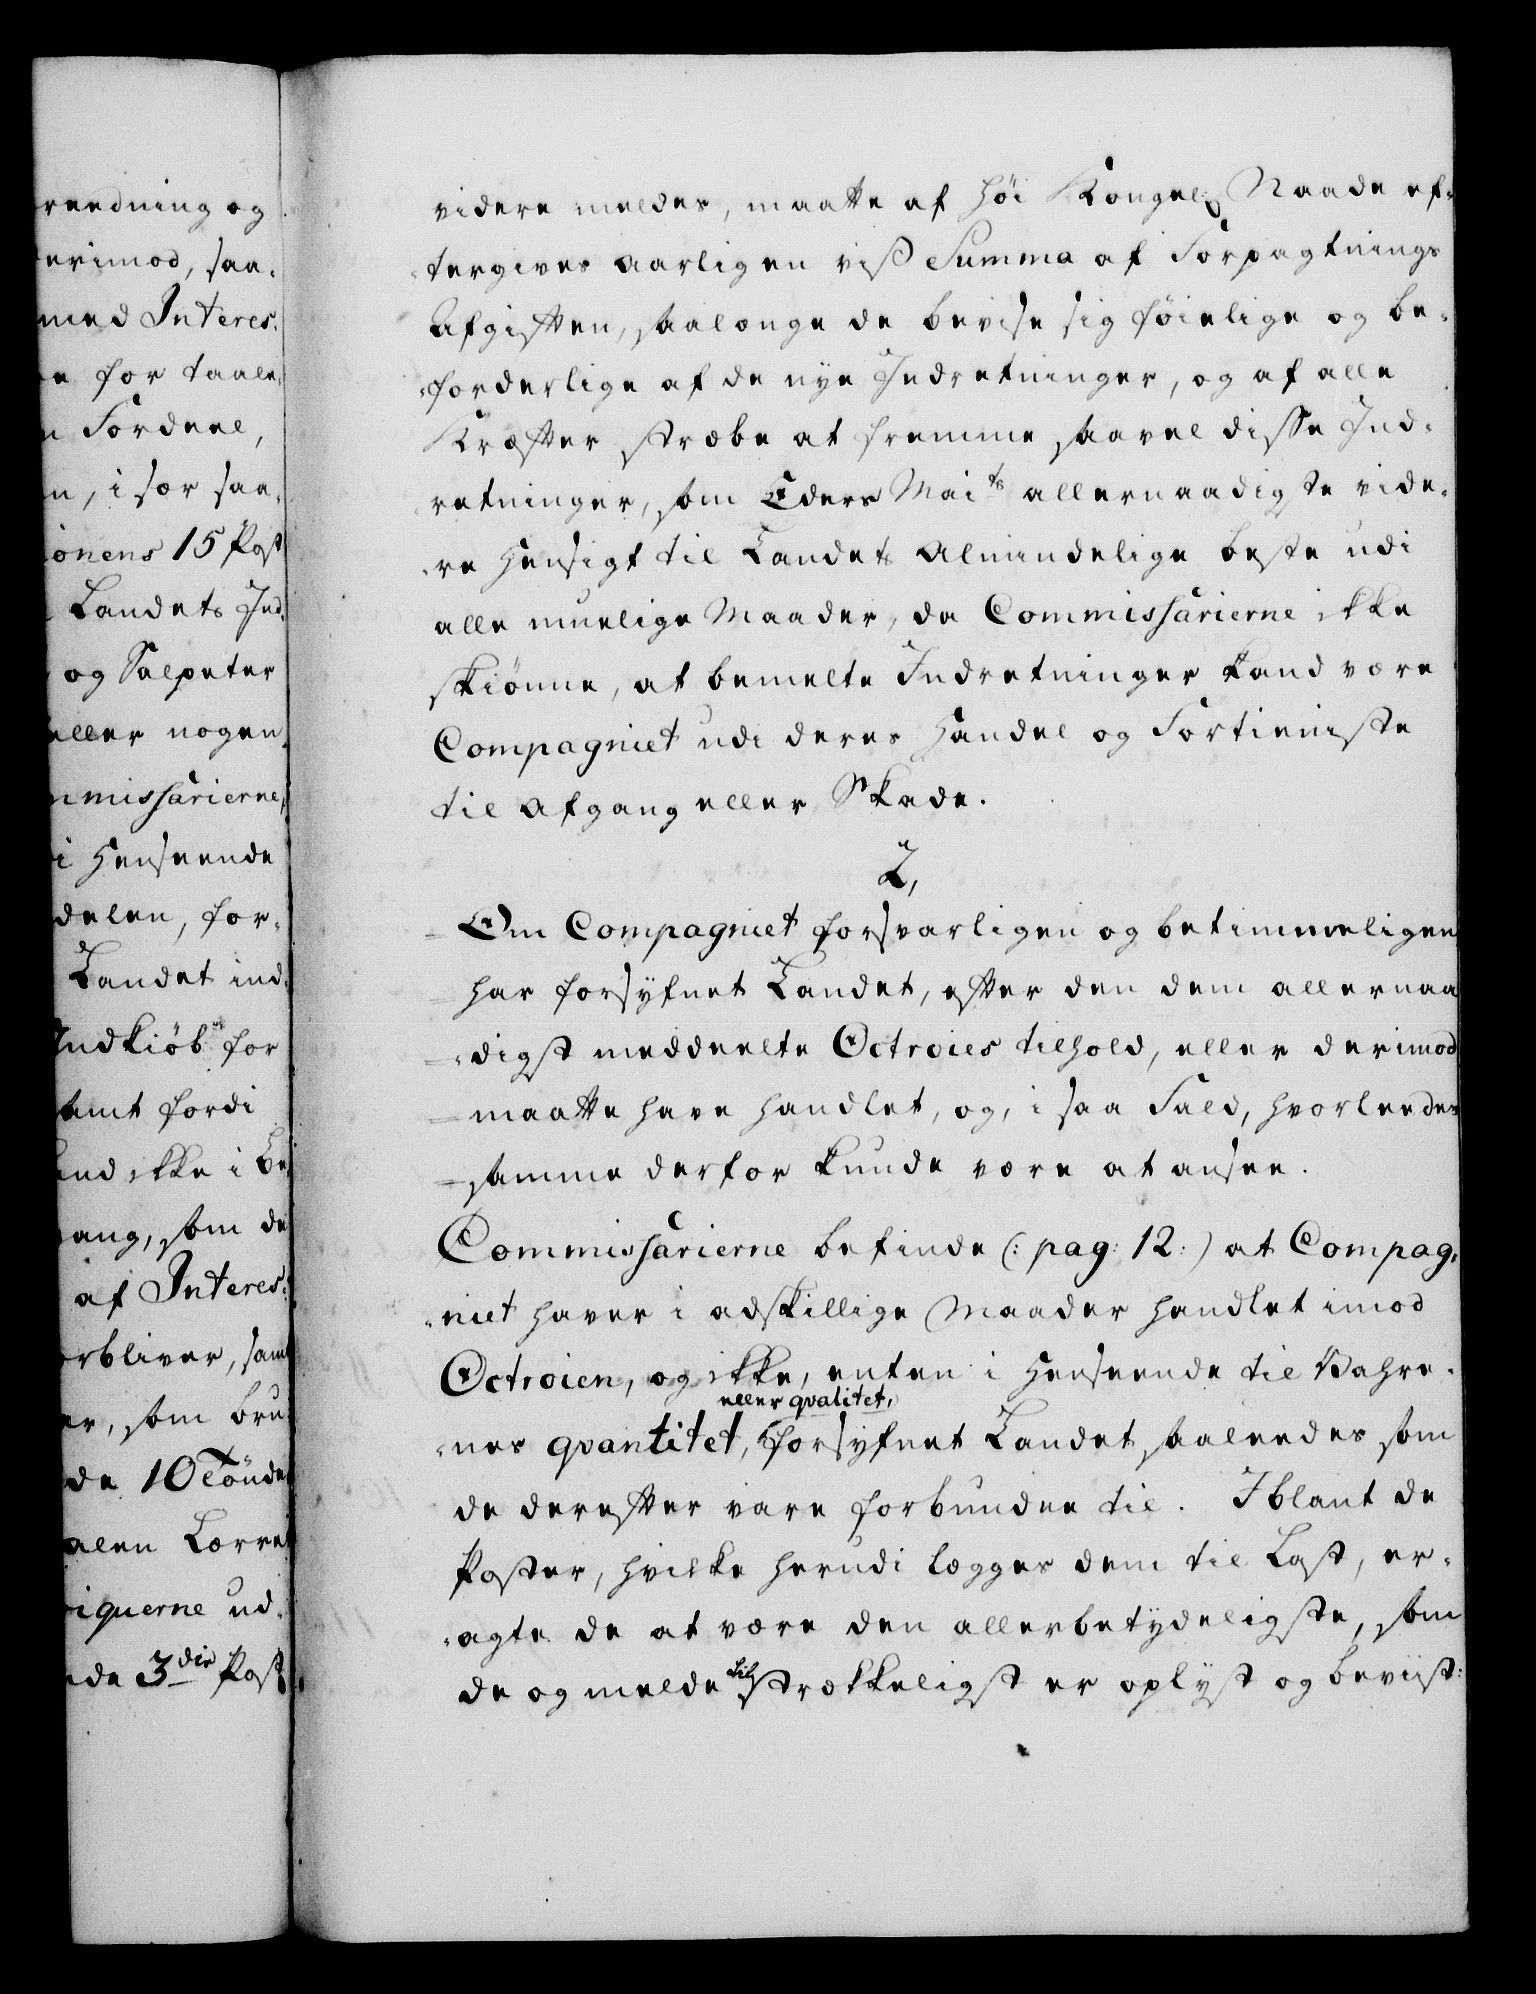 reedning og
erimod, saa-
med Interes-
e for taale-
n Fordeel,
n, i sær saa-
ionens 15 Post
Landets Ind-
og Salpeter
eller nogen
mmissarierne,
i Henseende
delen, for-
Landet ind-
Indkiöb for
samt fordi
and ikke i Be-
gang, som de
af Interes-
orbliver, samt
er, som bru-
de 10 Tönde
alen Lærre
iquerne ud-
nde 3die Post
videre meldes, maatte af höi Kongel: Naade ef-
-tergives aarligen viß Summa af Forpagtnings
Afgiften, saalænge de beviise sig föielige og be-
-forderlige af de nye Indretninger, og af alle
Kræfter stræbe at fremme saavel disse Ind-
retninger, som Eders Maits allernaadigste vide-
-re Hensigt til Landets Almindelige beste udi
alle muelige Maader, da Commissarierne ikke
skiönne, at bemelte Indretninger kand være
Compagniet udi deres Handel og Fortieniste
til afgang eller Skade.
2,
Om Compagniet forsvarligen og betimmeligen
har forsÿfnet Landet, efter den dem allernaa
-digst meddeelte Octroies tilhold, eller derimod
maatte have handlet, og, i saa Fald, hvorleedes
samme derfor kunde være at ansee.
Commissarierne befinde (: pag: 12:) at Compag-
-niet haver i adskillige Maader handlet imod
Octroien, og ikke, enten i Henseende til Vahre-
eller qvalitet,
-nes qvantitet, forsÿfnet Landet saaleedes som
de derefter vare forbundne til. Iblant de
Poster, hvilke herudi lægges dem til Last, er-
-agte de at være den allerbetÿdeligste, som
de og melde tilstrækkeligst er oplÿst og beviist: